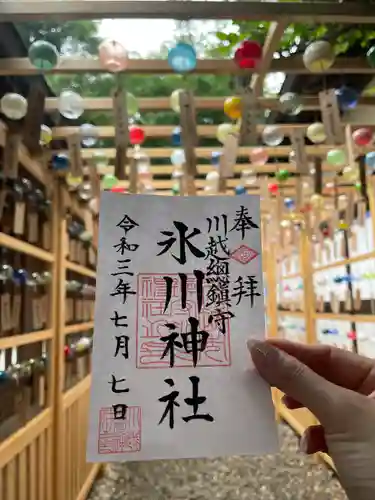 奉拝
川越総鎮守
氷川神社
令和三年七月七日